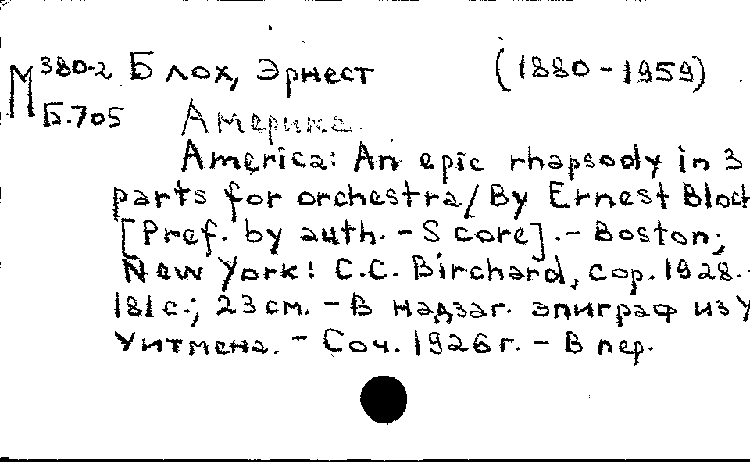 М 380-2 Блох, Эрнест (1880-1959)
Б.705 Америка.
America: An epic rhapsody in 3
parts for orchestra/ By Ernest Bloch
[Pref. by auth. - Score]. - Boston;
New York: C.C. Birchard, cop. 1928. -
181 с.; 23 см. - В надзаг. эпиграф из У
Уитмена. - Соч. 1926 г. - В пер.